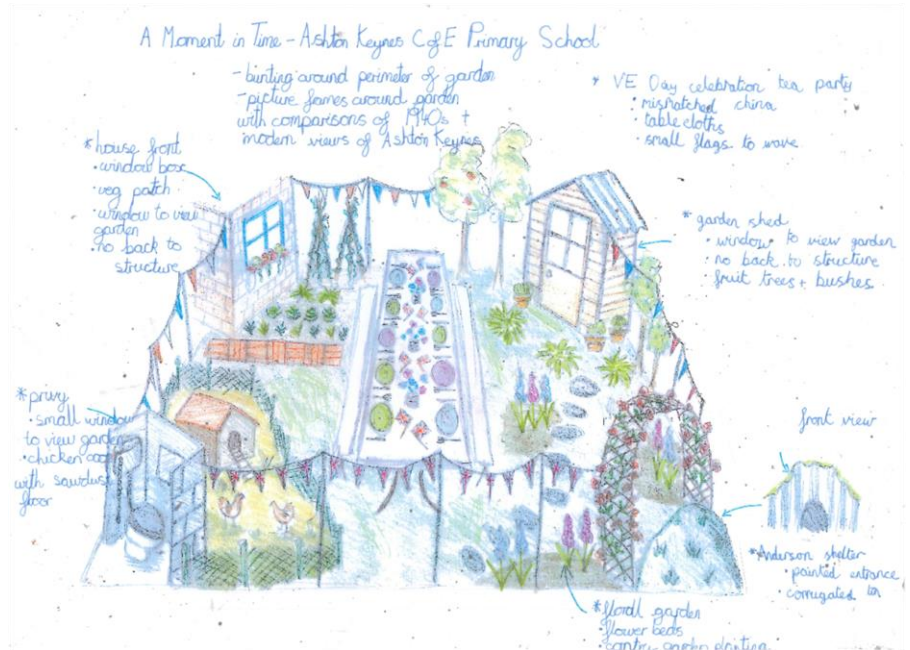 A Moment in Time - Ashton Keynes C of E Primary School
- bunting around perimeter of garden
- picture frames around garden
with comparisons of 1940s +
modern views of Ashton Keynes
* VE Day celebration tea party
• mismatched china
• table cloths
• small flags to wave
* house front
• window box
• veg patch
• window to view
garden
• no back to
structure
* garden shed
• window to view garden
• no back to structure
• fruit trees + bushes
* privy
• small window
to view garden
• chicken coop
with sawdust
floor
front view
* Anderson shelter
• painted entrance
• corrugated tin
* floral garden
• flower beds
garden planting